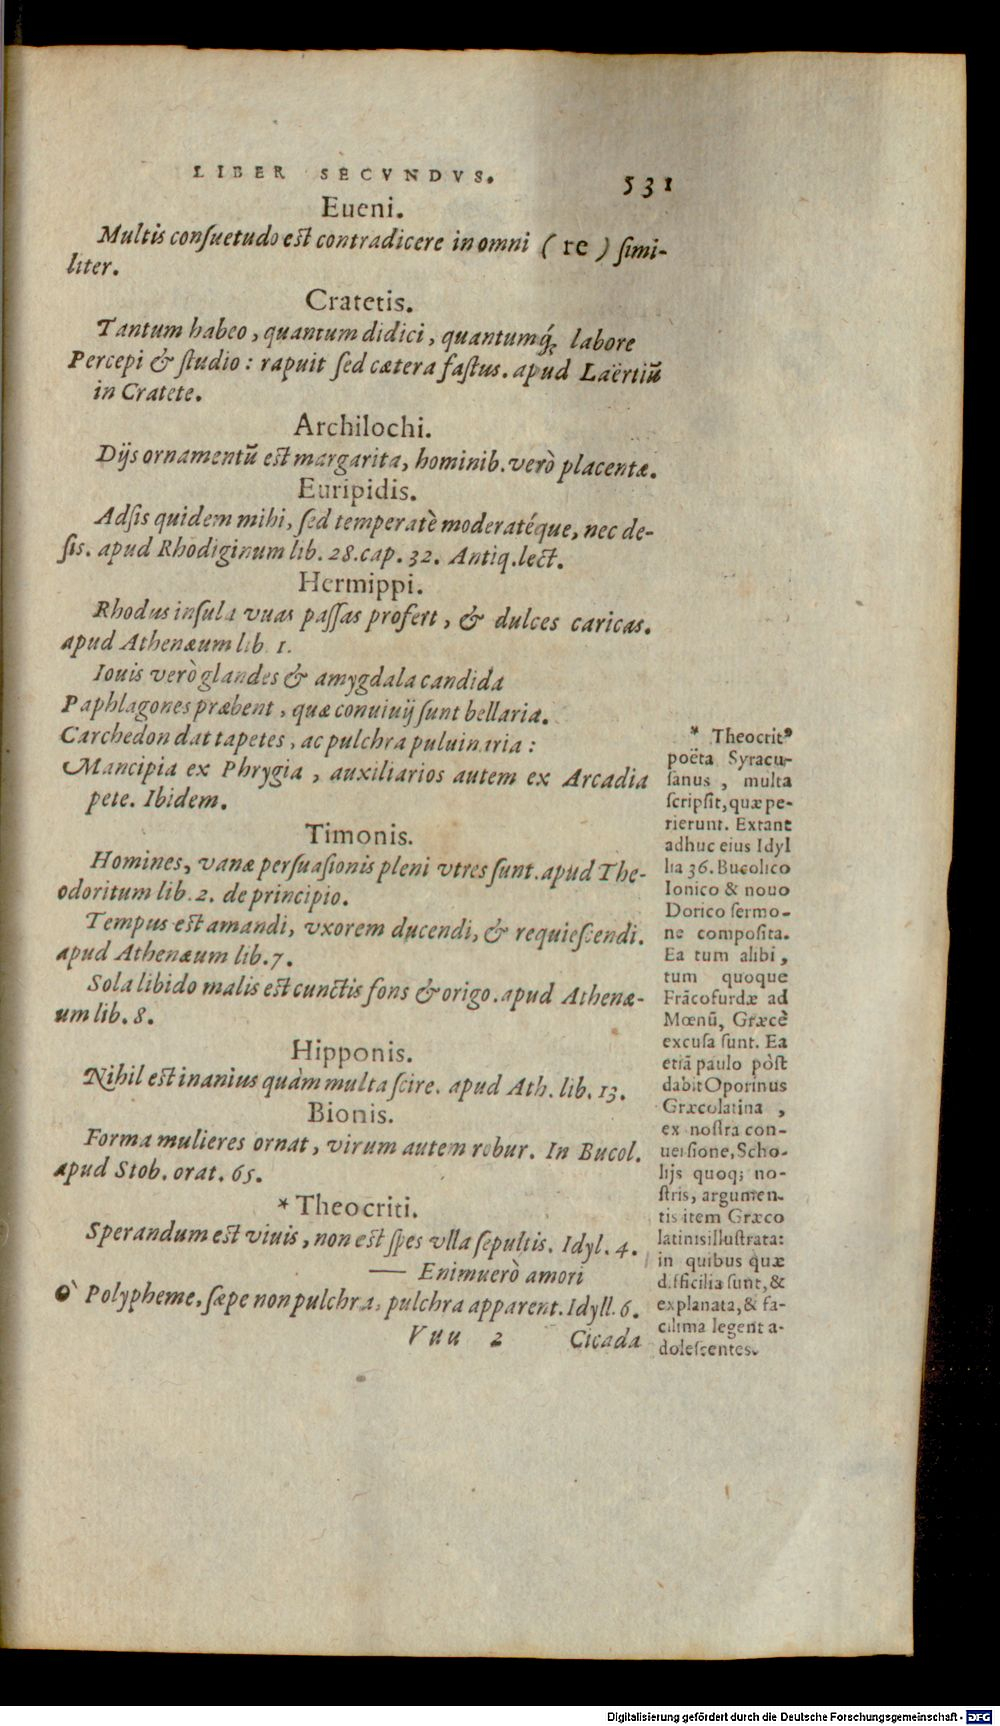 LIBER SECVNDVS. 531
Eueni.
Multis consuetudo est contradicere in omni (re) simi-
liter.
Cratetis.
Tantum habeo, quantum didici, quantumq́; labore
Percepi & studio: rapuit sed cætera fastus. apud Laërtiũ
in Cratete.
Archilochi.
Dijs ornamentũ est margarita, hominib. verò placentæ.
Euripidis.
Adsis quidem mihi, sed temperatè moderatéque, nec de-
sis. apud Rhodiginum lib. 28. cap. 32. Antiq. lect.
Hermippi.
Rhodus insula vuas passas profert, & dulces caricas.
apud Athenæum lib. 1.
Iouis verò glandes & amygdala candida
Paphlagones præbent, quæ conuiuij sunt bellaria.
Carchedon dat tapetes, ac pulchra puluinaria:
Mancipia ex Phrygia, auxiliarios autem ex Arcadia
pete. Ibidem.
Timonis.
Homines, vanæ persuasionis pleni vtres sunt. apud The-
odoritum lib. 2. de principio.
Tempus est amandi, vxorem ducendi, & requiescendi.
apud Athenæum lib. 7.
Sola libido malis est cunctis fons & origo. apud Athenæ-
um lib. 8.
Hipponis.
Nihil est inanius quàm multa scire. apud Ath. lib. 13.
Bionis.
Forma mulieres ornat, virum autem robur. In Bucol.
apud Stob. orat. 65.
*Theocriti.
Sperandum est viuis, non est spes vlla sepultis. Idyl. 4.
— Enimuerò amori
ò Polypheme, sæpe non pulchra, pulchra apparent. Idyll. 6.
Vuu 2 Cicada
* Theocritꝰ
poëta Syracu-
sanus, multa
scripsit, quæ pe-
rierunt. Extant
adhuc eius Idyl
lia 36. Bucolico
Ionico & nouo
Dorico sermo-
ne composita.
Ea tum alibi,
tum quoque
Frãcofurdæ ad
Mœnũ, Græcè
excusa sunt. Ea
etiã paulo pòst
dabit Oporinus
Græcolatina,
ex nostra con-
uersione, Scho-
lijs quoq; no-
stris, argumen-
tis item Græco
latinis illustrata:
in quibus quæ
difficilia sunt, &
explanata, & fa-
cilima legent a-
dolescentes.
Digitalisierung gefördert durch die Deutsche Forschungsgemeinschaft - DFG